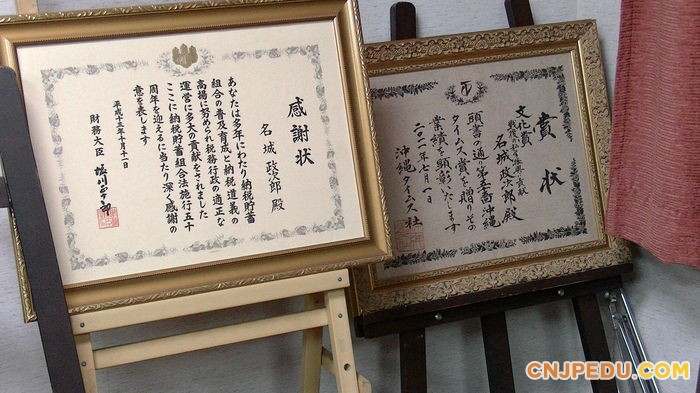 感謝状
名城 政次郎 殿
あなたは多年にわたり納税貯蓄
組合の普及育成と納税道義の
高揚に努められ税務行政の適正な
運営に多大の貢献をされました
ここに納税貯蓄組合法施行五十
周年を迎えるに当たり深く感謝の
意を表します
平成十三年十月十一日
財務大臣 塩川正十郎
賞状
文化賞
名城 政次郎 殿
頭書の通り第五十五回沖縄
タイムス賞を贈りその
業績を顕彰いたします
二〇一一年七月一日
沖縄タイムス社
CNJPEDU.COM